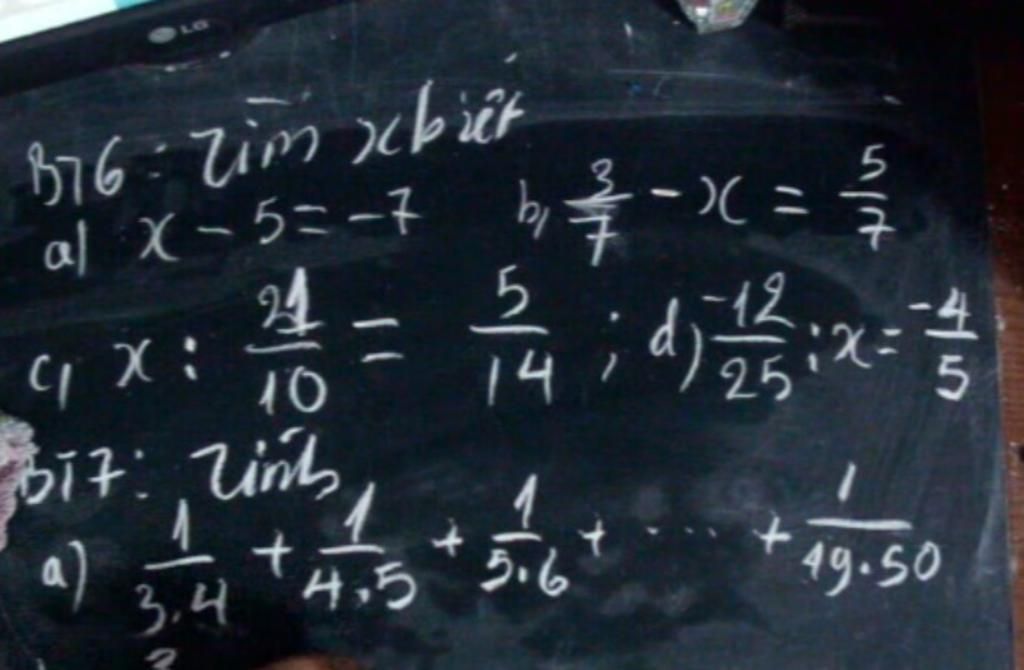 LG
BT6: Tìm x biết
a) x - 5 = -7 b, 3/7 - x = 5/7
c, x : 21/10 = 5/14 ; d) -12/25 : x = -4/5
BT7: Tính
a) 1/3.4 + 1/4.5 + 1/5.6 + .... + 1/49.50